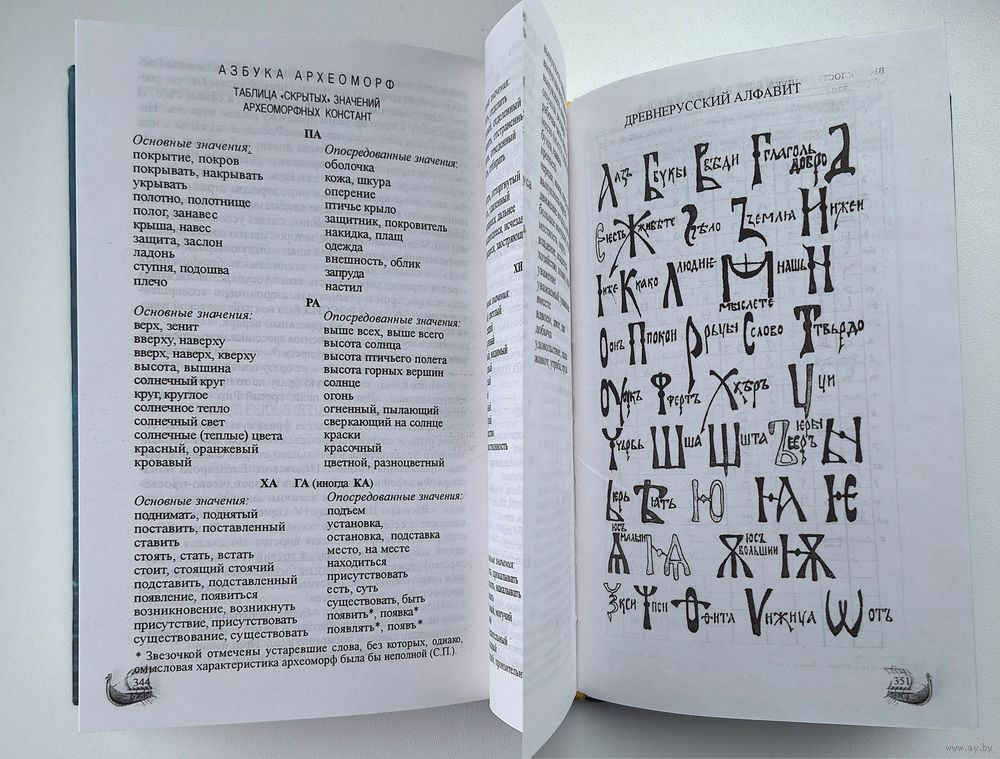 АЗБУКА АРХЕОМОРФ
ТАБЛИЦА «СКРЫТЫХ» ЗНАЧЕНИЙ
АРХЕОМОРФНЫХ КОНСТАНТ
ПА
Основные значения:
покрытие, покров
покрывать, накрывать
укрывать
полотно, полотнище
полог, занавес
крыша, навес
защита, заслон
ладонь
ступня, подошва
плечо
Опосредованные значения:
оболочка
кожа, шкура
оперение
птичье крыло
защитник, покровитель
накидка, плащ
одежда
внешность, облик
запруда
настил
РА
Основные значения:
верх, зенит
вверху, наверху
вверх, наверх, кверху
высота, вышина
солнечный круг
круг, круглое
солнечное тепло
солнечный свет
солнечные (теплые) цвета
красный, оранжевый
кровавый
Опосредованные значения:
выше всех, выше всего
высота солнца
высота птичьего полета
высота горных вершин
солнце
огонь
огненный, пылающий
сверкающий на солнце
краски
красочный
цветной, разноцветный
ХА ГА (иногда КА)
Основные значения:
поднимать, поднятый
поставить, поставленный
ставить
стоять, стать, встать
стоит, стоящий стоячий
подставить, подставленный
появление, появиться
возникновение, возникнуть
присутствие, присутствовать
существование, существовать
Опосредованные значения:
подъем
установка,
остановка, подставка
место, на месте
находиться
присутствовать
есть, суть
существовать, быть
появить*, появка*
появлять*, появъ*
* Звездочкой отмечены устаревшие слова, без которых, однако,
смысловая характеристика археоморф была бы неполной (С.П.).
344
ДРЕВНЕРУССКИЙ АЛФАВИТ
Азъ Б Букы В Вѣди Г Глаголь Добро Д
Є есть Ж Живѣте Ѕ Ѕѣло Ꙁ Земля И Нижеи
І Іиже К како Л людиıе М мыслете нашь Н
О Онъ П покои Р Рьцы С Слово Т Твьрдо
Оу Оукъ Ф Фертъ Х Хѣръ Ц Ци
Ч Чьрвь Ш Ша Щ Шта Ъ Ѥръ Ѥры Ы
Ь Ѥрь Ѣ Ѣать Ю Ꙗ Ѥ
Ѧ юсъ малыи Ѩ Ѫ юсъ большии Ѭ
Ѯ кси Ѱ пси Ѳ Фита Ѵ ижица Ѡ отъ
351
www.ay.by